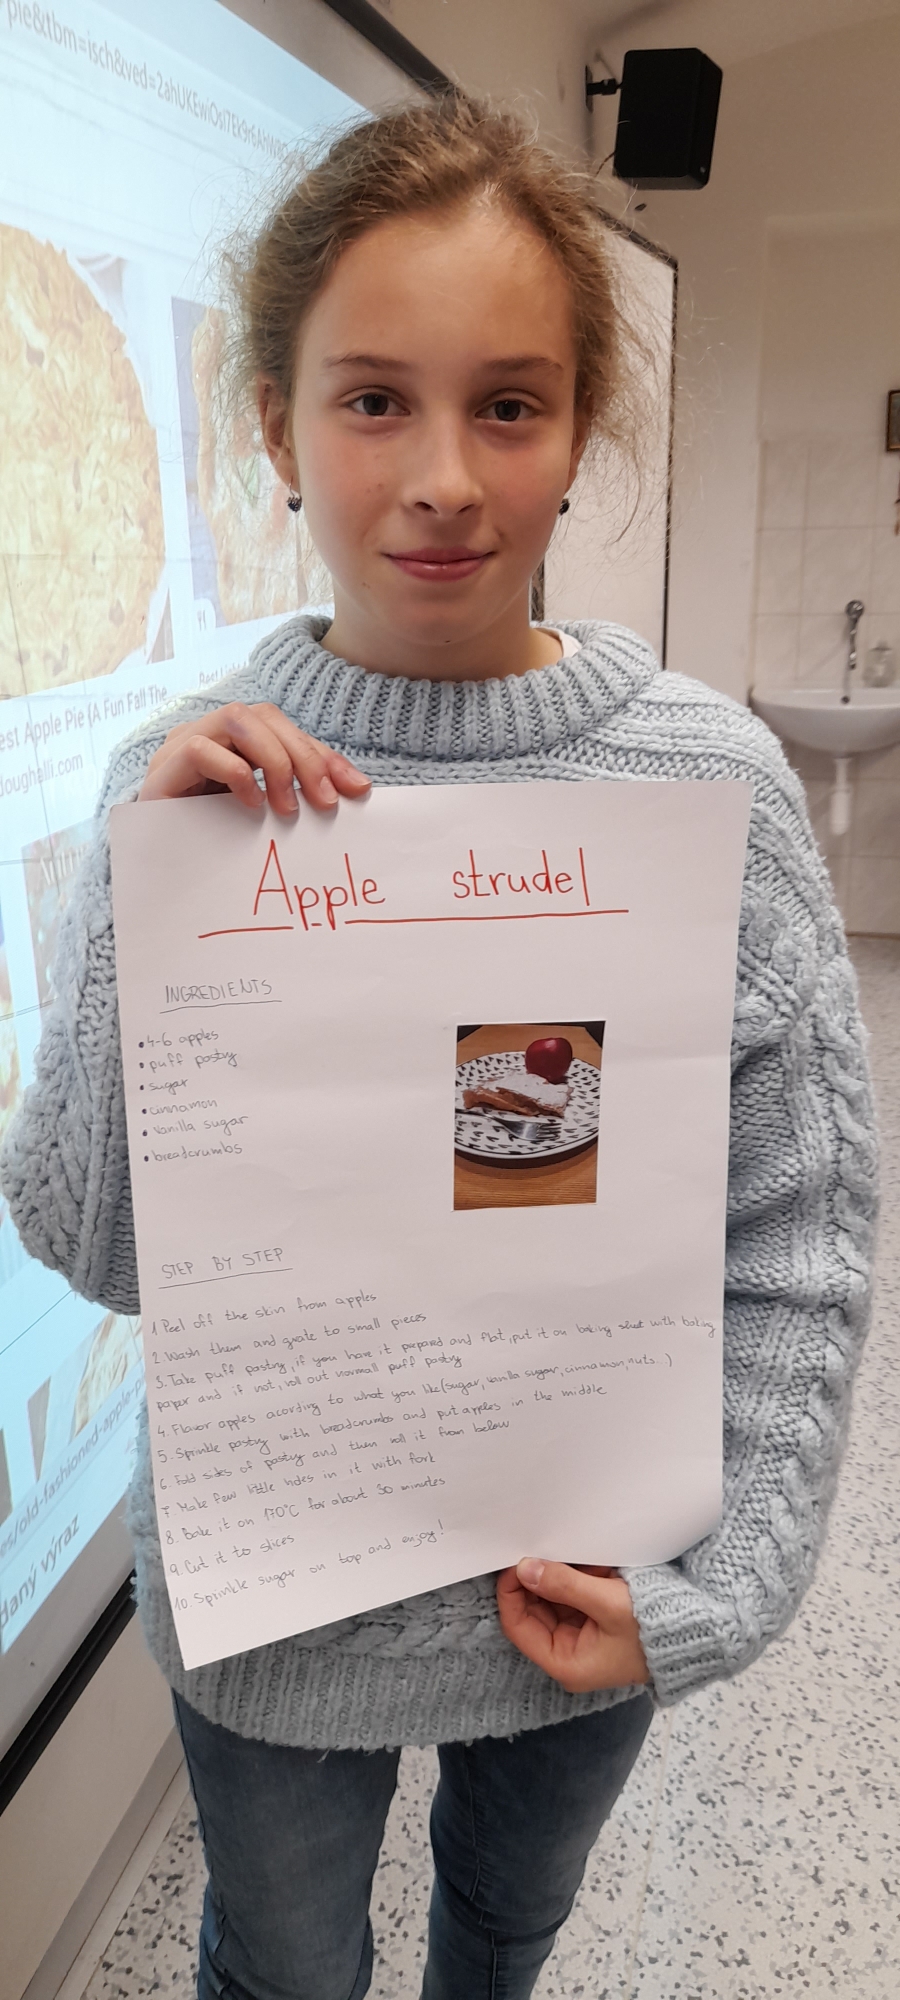 pie&tbm=isch&ved=2ahUKEwiOsI7Ek9r6AhW
est Apple Pie (A Fun Fall The
doughelli.com
Apple strudel
INGREDIENTS
•4-6 apples
•puff pastry
•sugar
•cinnamon
•vanilla sugar
•breadcrumbs
STEP BY STEP
1 Peel off the skin from apples
2 Wash them and grate to small pieces
3. Take puff pastry, if you have it prepared and flat, put it on baking sheet with baking
paper and if not, roll out normall puff pastry
4. Flavor apples acording to what you like (sugar, vanilla sugar, cinnamon, nuts...)
5. Sprinkle pastry with breadcrumbs and put apples in the middle
6. Fold sides of pastry and then roll it from below
7. Make few little holes in it with fork
8. Bake it on 170°C for about 30 minutes
9. Cut it to slices
10. Sprinkle sugar on top and enjoy!
es/old-fashioned-apple-p
daný výraz